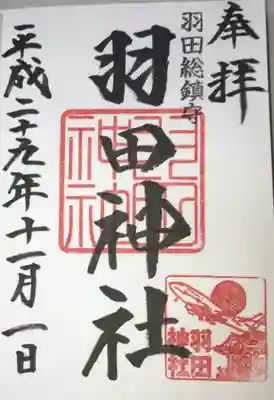 奉拝
羽田総鎮守
羽田神社
羽田神社
平成二十九年十一月一日
羽田
神社